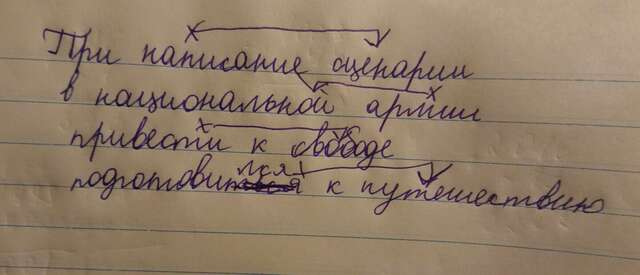 При написание сценарии
в национальной армии
привести к свободе
подготовился к путешествию